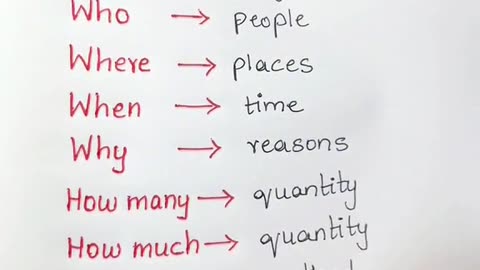 Who → people
Where → places
When → time
Why → reasons
How many → quantity
How much → quantity